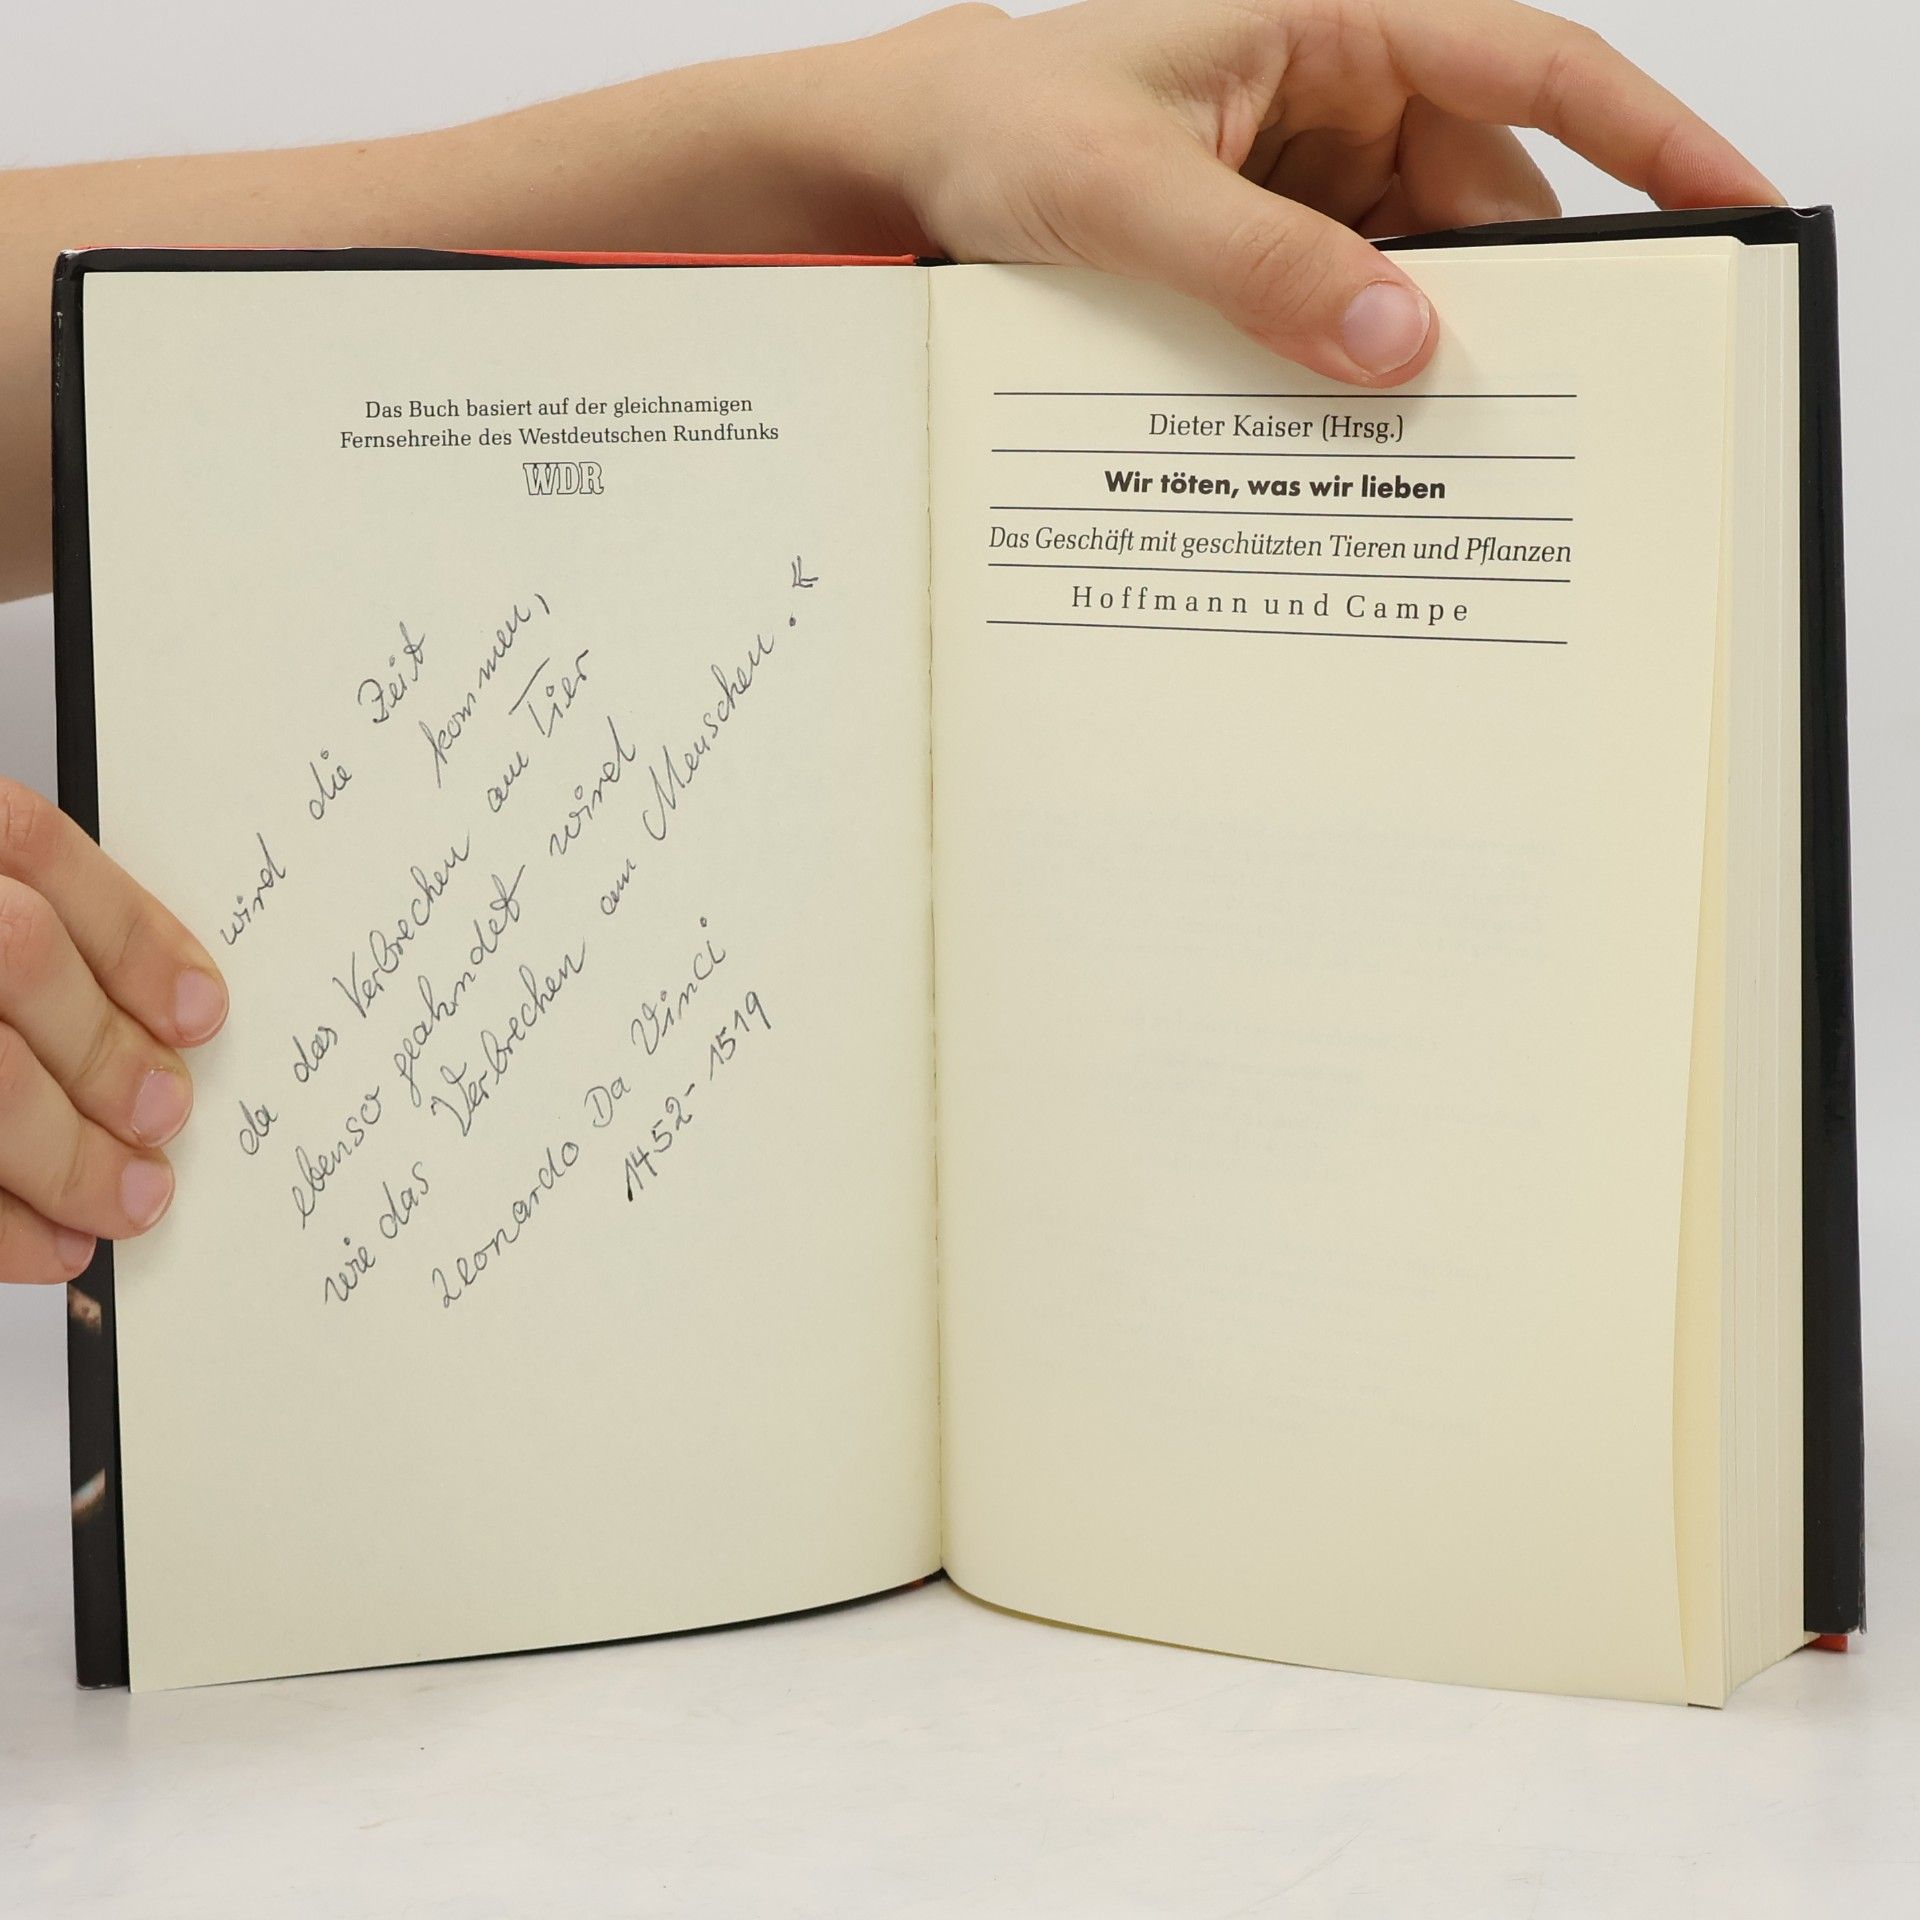 Das Buch basiert auf der gleichnamigen
Fernsehreihe des Westdeutschen Rundfunks
WDR
wird die Zeit
kommen,
da das Verbrechen am Tier
ebenso geahndet wird
wie das Verbrechen am Menschen."
Leonardo Da Vinci
1452-1519
Dieter Kaiser (Hrsg.)
Wir töten, was wir lieben
Das Geschäft mit geschützten Tieren und Pflanzen
Hoffmann und Campe